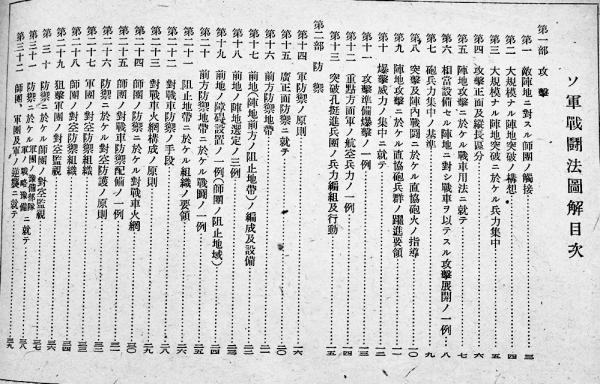 ソ軍戰鬪法圖解目次
第一部 攻擊
第一 敵陣地ニ對スル師團ノ觸接…………三
第二 大規模ナル陣地突破ノ構想…………四
第三 大規模ナル陣地突破ニ於ケル兵力集中…………五
第四 攻擊正面及縱長區分…………六
第五 陣地攻擊ニ於ケル戰車用法ニ就テ…………七
第六 相當設備セル陣地ニ對シ戰車ヲ以テスル攻擊展開ノ一例…………八
第七 砲兵力集中ノ基準…………九
第八 突擊及陣內戰鬪ニ於ケル直協砲火ノ指導…………一〇
第九 陣地攻擊ニ於ケル直協砲兵群ノ躍進要領…………一一
第十 爆擊威力ノ集中ニ就テ…………一二
第十一 攻擊準備爆擊ノ一例…………一三
第十二 重點方面軍ノ航空兵力ノ一例…………一四
第十三 突破孔挺進兵團ノ兵力編組及行動…………一五
第二部 防禦
第十四 軍防禦ノ原則…………一六
第十五 廣正面防禦ニ就テ…………
第十六 前方防禦地帶…………二〇
第十七 前地(陣地前方ノ阻止地帶)ノ編成及設備…………
第十八 前地ノ陣地選定ノ三例…………
第十九 前地ノ障碍設置ノ一例(師團ノ阻止地域)…………
第二十 前方防禦地帶ニ於ケル戰鬪ノ一例…………
第二十一 阻止地帶ニ於ケル組織ノ要領…………
第二十二 對戰車防禦ノ手段…………
第二十三 對戰車火網構成ノ原則…………
第二十四 師團防禦ニ於ケル對戰車火網…………
第二十五 師團ノ對戰車防禦配備ノ一例…………
第二十六 防禦ニ於ケル對空防護ノ原則…………
第二十七 軍ノ對空防禦組織…………
第二十八 師團ノ對空防禦組織…………
第二十九 狙擊軍團ノ對空監視…………
第三十 防禦ニ於ケル師團ノ對空監視…………
第三十一 防禦ニ於ケル軍ノ戰略豫備ニ就テ…………三八
第三十二 師團、軍團及軍ノ逆襲ニ就テ…………三九